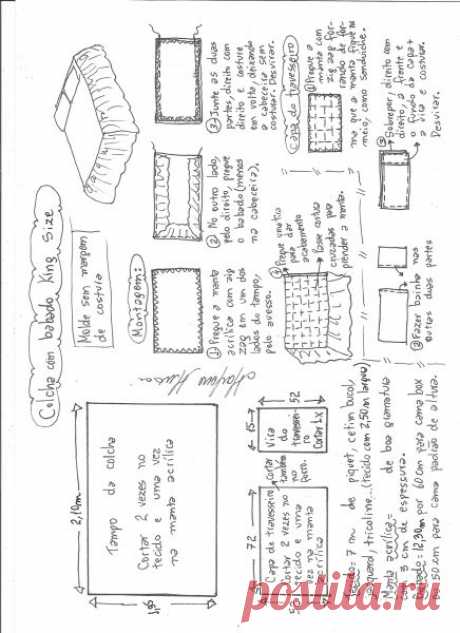 Colcha com babado King Size
Molde sem margem
de costura
2,10m
Tampo da colcha
Cortar 2 vezes no
tecido e uma vez
na manta acrílica
Montagem:
① Pregue a manta
acrílica com zig
zag em um dos
lados do tampo,
pelo avesso.
② No outro lado,
pelo direito, pregue
o babado (menos
na cabeceira).
③ Junte as duas
partes, direito com
direito e costure
em volta, deixando
a cabeceira sem
costurar. Desvirar.
④ Pregue um viés
para dar
acabamento
Passe costura
cruzadas para
prender a manta.
Capa do travesseiro
① Pregue a
manta com
zig zag for-
rando de for-
ma que a manta fique no
meio, como sanduiche.
② Fazer bainha nas
outras duas partes
③ Sobrepor, direito com
direito, a frente e
o fundo da capa +
a vira e costurar.
Desvirar.
72
52
Capa de travesseiro
Cortar 2 vezes no
tecido e uma
vez na manta
acrílica
Cortar
também
no
15
52
Vira
do
travessei-
ro
Cortar 1x
tecido: 7 m de piquet, cetim bucol,
jaquard, tricoline...(tecido com 2,50m largura)
Manta acrílica= de boa gramatura
com 3 cm de espessura.
Babado: 12,30m por 60cm para cama box
ou 50 cm para cama padrão de altura.
postila.ru